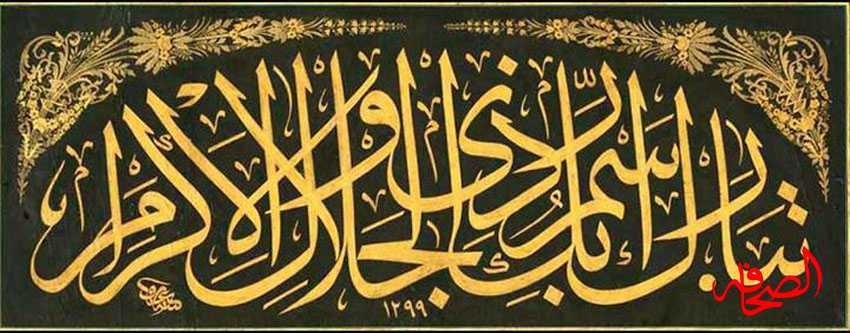 تبارك اسم ربك ذي الجلال والاكرام
١٢٩٩
الصحافة